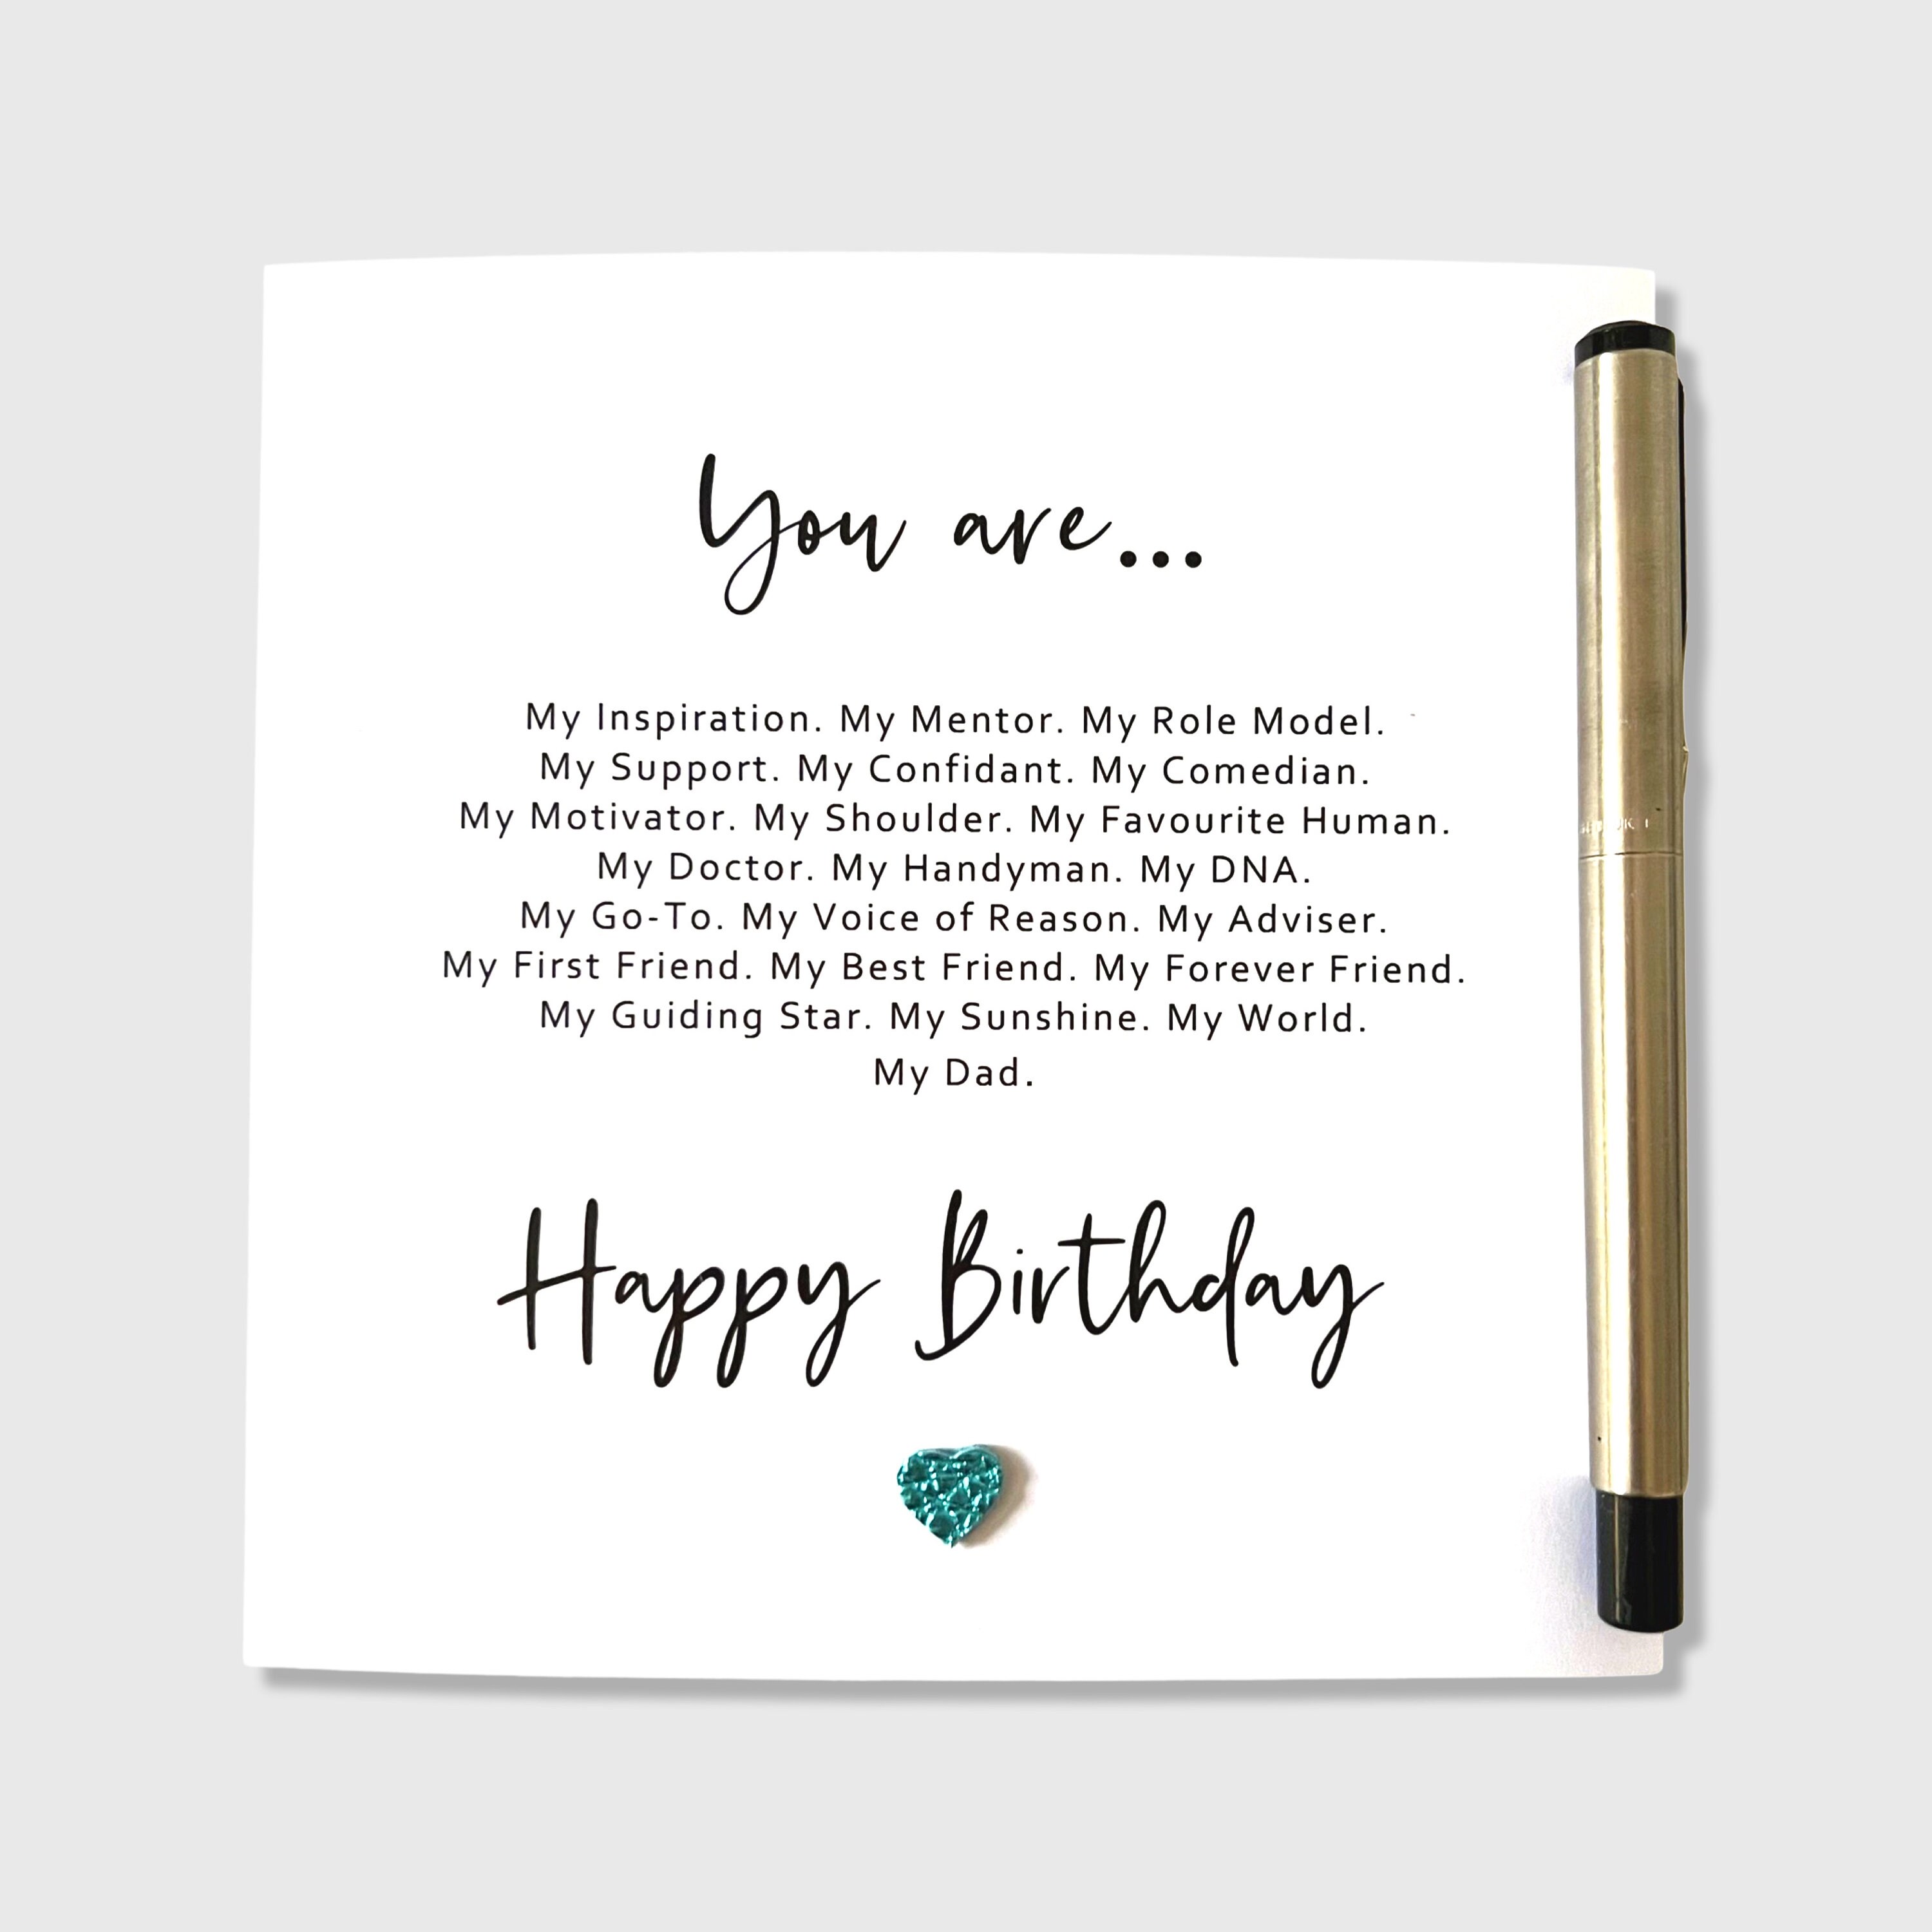 You are...
My Inspiration. My Mentor. My Role Model.
My Support. My Confidant. My Comedian.
My Motivator. My Shoulder. My Favourite Human.
My Doctor. My Handyman. My DNA.
My Go-To. My Voice of Reason. My Adviser.
My First Friend. My Best Friend. My Forever Friend.
My Guiding Star. My Sunshine. My World.
My Dad.
Happy Birthday